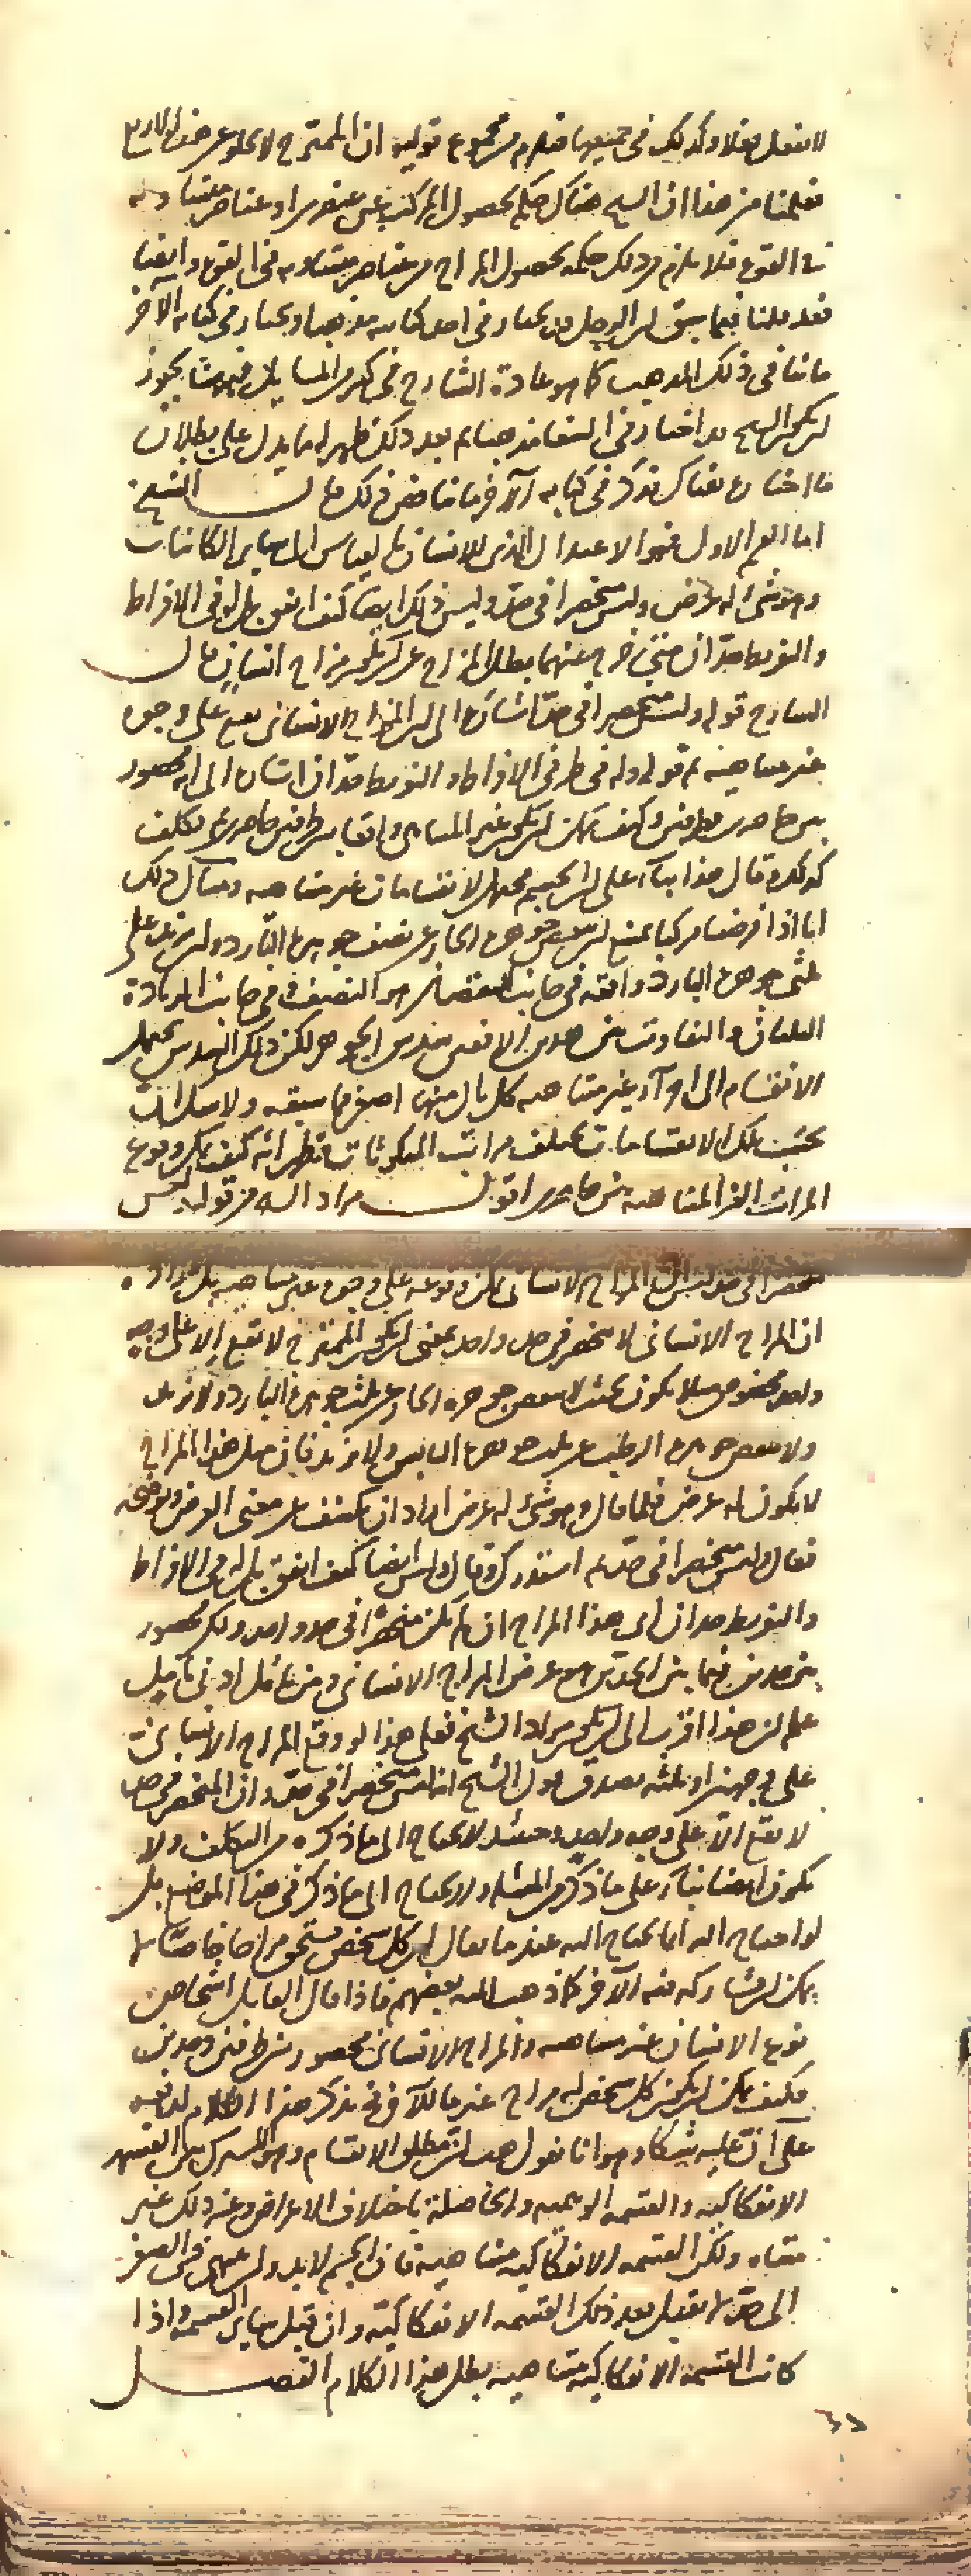 لا تفعل فعلا وكذلك في جميعها فيلزم من مجموع قوليه ان الممتزج لا يخلو عن هذه
فعلمنا من هذا ان الشيخ هناك حكم بحصول المركب عن عنصرين او عناصر متساوية
في القوى فلا يلزم من ذلك حكمه بحصول المزاج من عناصر متساوية في القوى وايضا
فقد قلنا فيما سبق ان الرجل قد يختار في احد كتابيه مذهبا ويختار في كتابه الآخر
ما ينافي ذلك المذهب كما هو عادة الشارح في اكثر المسايل فههنا يجوز
ان يكون الشيخ قد اختار في الشفا مذهبا ثم بعد ذلك ظهر له ما يدل على بطلان
ما اختاره هناك فذكر في كتابه الآخر ما يناقض ذلك قال الشيخ
اما القسم الاول فهو الاعتدال الذي للانسان بالقياس الى ساير الكائنات
وهو شيء له عرض وليس منحصرا في حد وليس ذلك ايضا كيف اتفق بل له في الافراط
والتفريط حدان متى خرج عنهما بطل المزاج عن ان يكون مزاج انسان قال
الشارح قوله وليس منحصرا في حد اشارة الى ان المزاج الانساني يقع على وجوه
غير متناهية ثم قوله وله في طرفي الافراط والتفريط حدان اشارة الى انه محصور
بين حاصرين طرفين وكيف يمكن ان يكون غير المتناهي واقعا بين طرفين حاصرين ثم تكلف
لذلك وقال هذا بناء على ان الجسم يحتمل لانقسامات غير متناهية ومثال ذلك
انا اذا فرضنا مركبا يمتنع ان ينقص جوهره الحار عن نصف جوهره البارد وان يزيد على
ثلثي جوهره البارد فالحد في جانب النقصان هو النصف وفي جانب الزيادة
الثلثان والتفاوت بين هذين الحدين بسدس الجوهر لكن ذلك السدس يحتمل
الانقسام الى اجزاء غير متناهية كل تال منها اصغر مما سبقه ولا شك ان
بحسب تلك الانقسامات تختلف مراتب المتكونات فظهر انه كيف يمكن وقوع
المراتب الغير المتناهية بين حاصرين اقول مراد الشيخ من قوله ليس
منحصرا في حد ليس ان المزاج الانساني يمكن وقوعه على وجوه غير متناهية بل مراده
ان المزاج الانساني لا ينحصر في حد واحد بمعنى ان يكون الممتزج لا يقع الا على وجه
واحد مخصوص مثلا يكون بحيث لا ينقص جوهره الحار عن ثلث جوهره البارد ولا يزيد
ولا ينقص جوهره الرطب عن ثلث جوهره اليابس ولا يزيد فان مثل هذا المزاج
لا يكون له عرض فلما قال وهو شيء له عرض اراد ان يكشف عن معنى العرض ويوضحه
فقال وليس منحصرا في حد ثم استدرك وقال وليس ايضا كيف اتفق بل له في الافراط
والتفريط حدان اي هذا المزاج ان لم يكن منحصرا في حد واحد ولكن محصور
بين حدين فيما بين الحدين هو عرض المزاج الانساني ومن تأمل ادنى تأمل
علم ان هذا اقرب الى ان يكون مراد الشيخ فعلى هذا لو وقع المزاج الانساني
على وجهين او ثلثة يصدق قول الشيخ انه ليس منحصرا في حد وان المنحصر في حد
لا يقع الا على وجه واحد وحينئذ لا يحتاج الى ما ذكره من التكلف ولا
يكون ايضا بناء على ما ذكر من المسئلة ولا يحتاج الى ما ذكر في هذا الموضع بل
لو احتاج اليه انما يحتاج اليه عندما يقال ان كل شخص يستحق مزاجا خاصا لا
يمكن ان يشاركه فيه الآخر كما ذهب اليه بعضهم فاذا قال القايل اشخاص
نوع الانسان غير متناهية والمزاج الانساني محصور بين طرفين وحدين
فكيف يمكن ان يكون لكل شخص مزاج غير ما للآخر فح يذكر هذا الكلام لدفعه
على ان عليه شكا وهو انا نقول هب ان مطلق الانقسام وهو المشترك بين القسمة
الانفكاكية والقسمة الوهمية والحاصلة باختلاف الاعراض وغير ذلك غير
متناه ولكن القسمة الانفكاكية متناهية فان الجسم لابد وان ينتهي في الصغر
الى حد لا يقبل بعد ذلك القسمة الانفكاكية وان قبل ساير القسمة واذا
كانت القسمة الانفكاكية متناهية بطل هذا الكلام الفصل